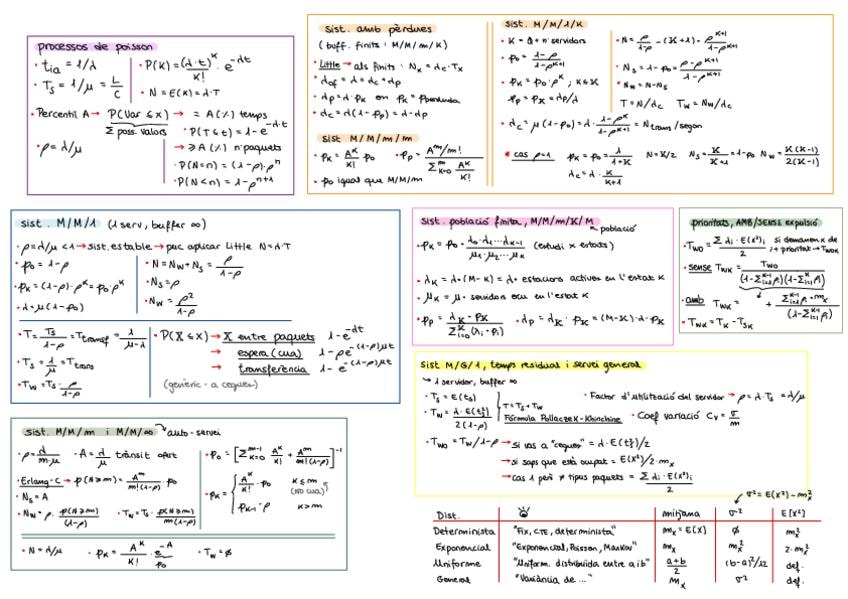 processos de poisson
• t_ia = 1/λ
• T_s = 1/μ = L/C
• P(K) = (λ·t)^K / K! · e^-λt
• N = E(K) = λ·T
• Percentil A → P(Var ≤ x) → = A(%) temps
Σ poss. valors
• P(T≤t) = 1-e^-λ·t
→ ≥ A(%) n·paquets
• P(N=n) = (1-ρ)·ρ^n
• P(N<n) = 1-ρ^n+1
• ρ = λ/μ
sist. amb pèrdues
(buff. finits: M/M/m/K)
• Little → als finits: N_x = λc·T_x
λof = λ = λc + λp
• λp = λ·P_K on P_K = Ppèrdua
• λc = λ(1-Pp) = λ-λp
sist M/M/m/m
• P_K = A^K/K! · P0
P_p = A^m/m! / Σ^m_K=0 A^K/K!
• P0 igual que M/M/m
sist. M/M/1/K
• K = Q + n·servidors
• P0 = 1-ρ / 1-ρ^K+1
• P_K = P0·ρ^K ; K≤K
P_p = P_K = λp/λ
• λc = μ(1-P0) = λ· 1-ρ^K / 1-ρ^K+1 = N trans/segon
• N = ρ/1-ρ - (K+1)· ρ^K+1 / 1-ρ^K+1
• N_s = 1-P0 = ρ-ρ^K+1 / 1-ρ^K+1
• N_w = N-N_s
T = N/λc T_w = N_w/λc
* cas ρ=1 P_K = P0 = 1/1+K N = K/2 N_s = K/K+1 = 1-P0 N_w = K(K-1)/2(K+1)
λc = λ· K/K+1
sist. M/M/1 (1 serv, buffer ∞)
• ρ = λ/μ <1 → sist. estable → puc aplicar Little N = λ·T
• P0 = 1-ρ
• P_K = (1-ρ)·ρ^K = P0·ρ^K
• λ = μ(1-P0)
• N = N_w + N_s = ρ/1-ρ
• N_s = ρ
• N_w = ρ²/1-ρ
• T = T_s/1-ρ = T_transf = 1/μ-λ
• T_s = 1/μ = T_trans
• T_w = T_s· ρ/1-ρ
• P(X≤x) → X entre paquets 1-e^-λt
→ espera (cua) 1-ρe^-(1-ρ)μt
→ transferència 1-e^-(1-ρ)μt
(genèric - a cegues)
sist. població finita, M/M/m/K/M
població
• P_K = P0· λ0·λ1...λK-1 / μ1·μ2...μK (estudi x estats)
• λ_K = λ·(M-K) = λ· estacions actives en l'estat K
• μ_K = μ· servidors ocu en l'estat K
• P_p = λ_K·P_K / Σ^K_i=0 (λi·Pi)
• λp = λ_K·P_K = (M-K)·λ·P_K
prioritats, AMB/SENSE expulsió
• T_w0 = Σ λi·E(X²)i / 2
• sense T_wK = T_w0 / (1-Σ^K-1_i=1 ρi)(1-Σ^K_i=1 ρi)
• amb T_wK =
• T_wK = T_K - T_sK
sist M/G/1, temps residual i servei general
1 servidor, buffer ∞
• T_s = E(ts)
• T_w = λ·E(ts²) / 2(1-ρ)
T = T_s + T_w
Fórmula Pollaczek-Khinchine
• Factor d'utilització del servidor → ρ = λ·T_s = λ/μ
• Coef variació C_v = σ/m
• T_w0 = T_w/1-ρ → si vas a "cegues" = λ·E(ts²)/2
→ si saps que està ocupat = E(X²)/2·m_x
→ cas 1 però ≠ tipus paquets = Σ λi·E(X²)i / 2
sist. M/M/m i M/M/∞ auto-servei
• ρ = λ/m·μ • A = λ/μ trànsit ofert
• Erlang-C → P(N≥m) = A^m / m!(1-ρ) · P0
• N_s = A
• N_w = ρ· P(N≥m)/(1-ρ) • T_w = T_s· P(N≥m)/m(1-ρ)
• P0 = [Σ^m-1_K=0 A^K/K! + A^m/m!(1-ρ)]^-1
• P_K = A^K/K! · P0 K≤m (NO cua)
P_K-1·ρ K>m
• N = λ/μ • P_K = A^K/K! · e^-A • T_w = ∅
P0
σ² = E(X²)-m_x²
Dist. mitjana σ² E(X²)
Determinista "Fix, CTE, determinista" m_x = E(X) ∅ m_x²
Exponencial "Exponencial, Poisson, Markov" m_x m_x² 2·m_x²
Uniforme "Uniform. distribuïda entre a i b" a+b/2 (b-a)²/12 def.
General "Variància de ..." m_x σ² def.